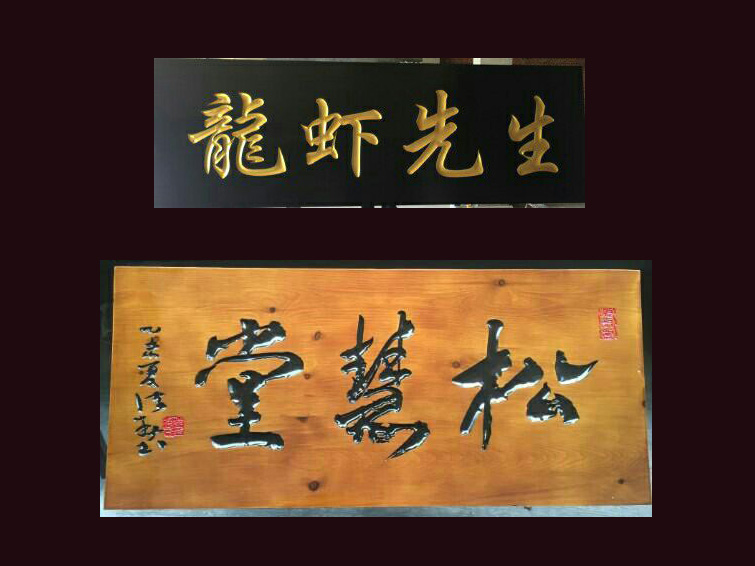 龍虾先生
松慧堂
乙未夏